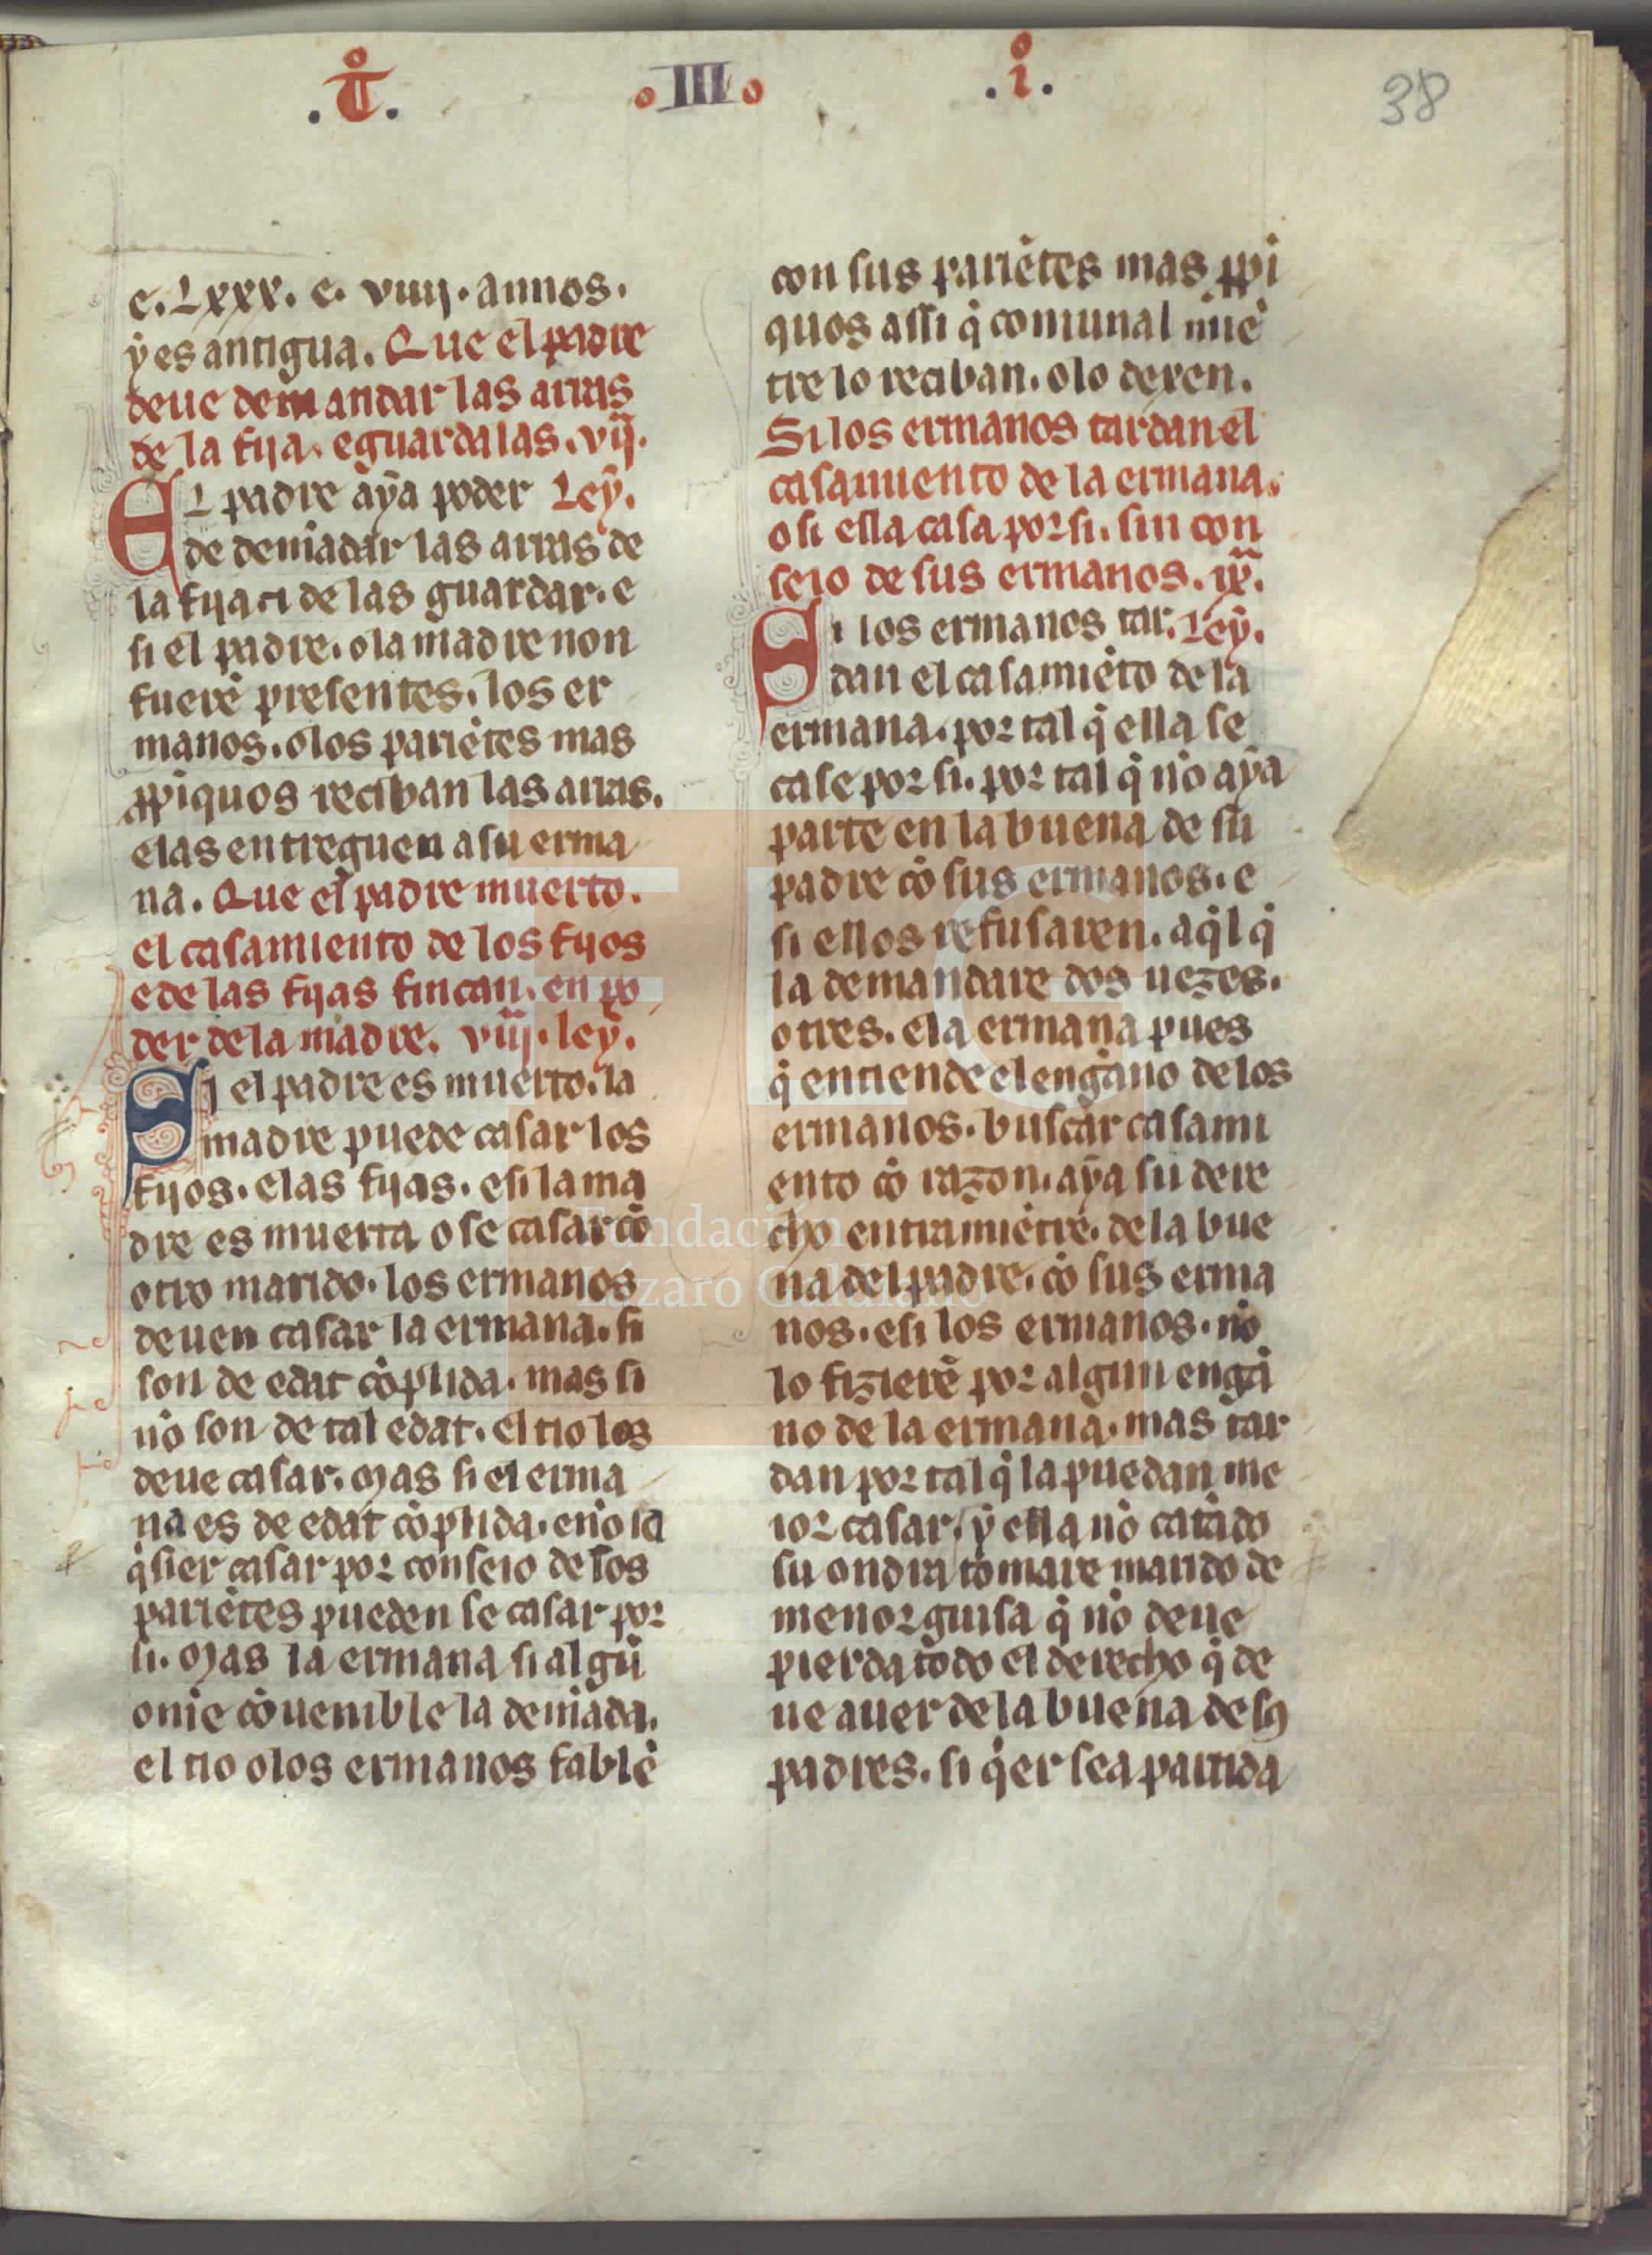 .T̊. ° III ° .i̊. 38
e. Lxxx. e. viiij. annos.
ẏ es antigua. Que el padre
deue demandar las arras
de la fija. e guardalas. vij.
EL padre aẏa poder Leẏ.
de demādar las arras de
la fija ⁊ de las guardar. e
si el padre. o la madre non
fuerē presentes. los er
manos. o los pariētes mas
ꝓpiquos reciban las arras.
e las entreguen a su erma
na. Que el padre muerto.
el casamiento de los fijos
e de las fijas fincan. en po
der de la madre. viij. leẏ.
Si el padre es muerto. la
madre puede casar los
fijos. e las fijas. e si la ma
dre es muerta o se casar cō
otro marido. los ermanos
deuen casar la ermana. si
son de edat cōplida. mas si
nō son de tal edat. el tio los
deue casar. Mas si el erma
na es de edat cōplida. e nō la
q̄sier casar por conseio de los
pariētes pueden se casar por
si. Mas la ermana si algū
ome cōuenible la demāda.
el tio o los ermanos fablē
con sus pariētes mas ꝓpi
quos assi q̄ comunal miē
tre lo reciban. o lo dexen.
Si los ermanos tardan el
casamiento de la ermana.
o si ella casa por si. sin con
seio de sus ermanos. ix.
Si los ermanos tar. Leẏ.
dan el casamiēto de la
ermana. por tal q̄ ella se
case por si. por tal q̄ nō aẏa
parte en la buena de su
padre cō sus ermanos. e
si ellos refusaren. aq̄l q̄
la demandare dos uezes.
o tres. e la ermana pues
q̄ entiende el engano de los
ermanos. buscar casami
ento cō razon. aẏa su dere
cho entramiētre. de la bue
na del padre. cō sus erma
nos. e si los ermanos. nō
lo fizierē por algun enga
no de la ermana. mas tar
dan por tal q̄ la puedan me
ior casar. ẏ ella nō catādo
su ondra tomare marido de
menor guisa q̄ nō deue
pierda todo el derecho q̄ de
ue auer de la buena de sus
padres. si q̄er sea partida
Fundación
Lázaro Galdiano